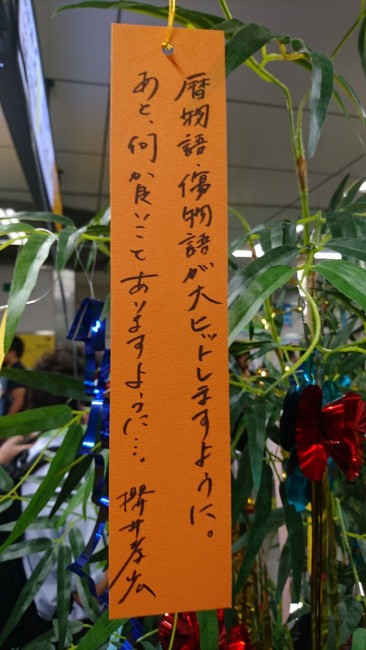 暦物語・傷物語が大ヒットしますように。
あと、何か良いことありますように…。
櫻井孝宏